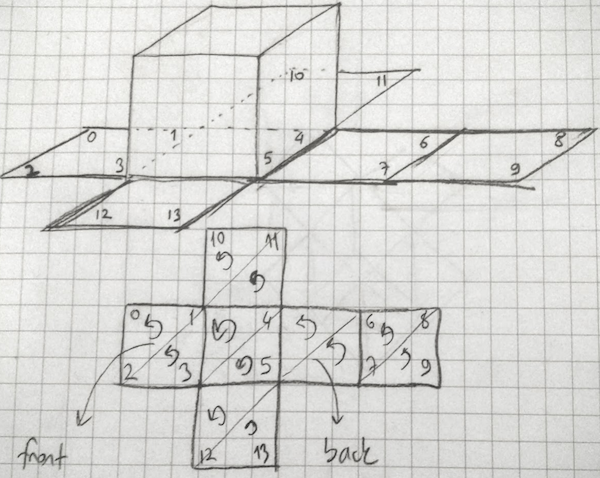 10
11
0 1 4 6 8
2 3 5 7 9
12 13
10 11
0 1 4 6 8
2 3 5 7 9
12 13
front back